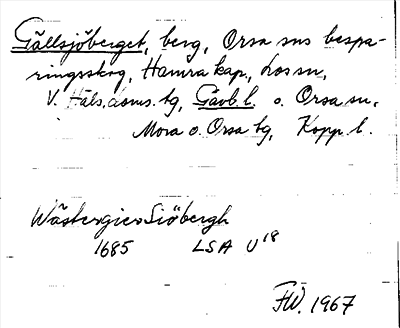 Gällsjöberget, berg, Orsa sns bespa-
ringsskog, Hamra kap, Los sn,
V. Häls. doms. tg, Gävb. l. o. Orsa sn,
Mora o. Orsa tg, Kopp. l.
Wästergies Siöbergh
1685 LSA U18
FW. 1967